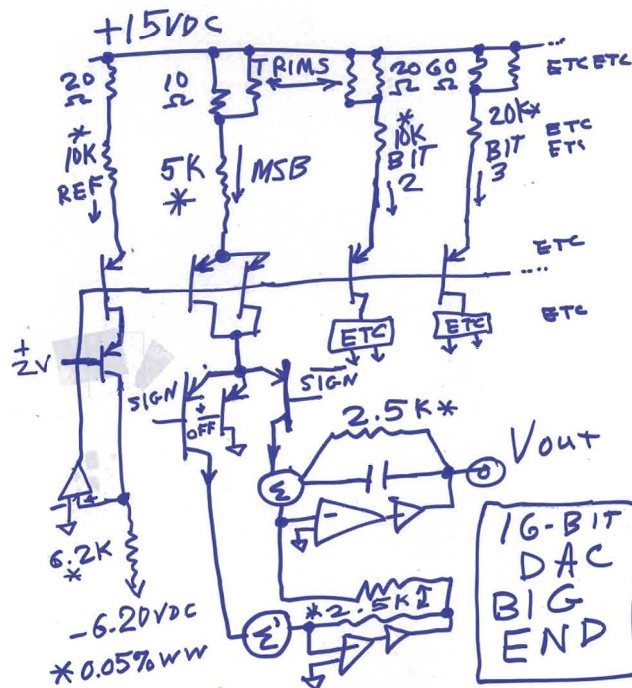 +15VDC
20
Ω
10
Ω
TRIMS
20
Ω
60
Ω
...
ETC ETC
*
10K
REF
5K
*
MSB
*
10K
BIT
2
20K*
BIT
3
ETC
ETC
....
ETC
ETC
ETC
ETC
+
2V
SIGN
OFF
SIGN
2.5K*
Vout
Σ
-
6.2K
*
-6.20VDC
*0.05% WW
Σ'
*2.5K
16-BIT
DAC
BIG
END